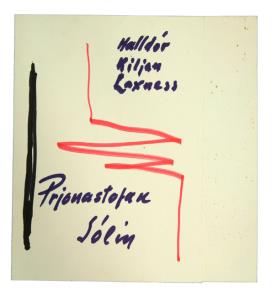 Halldór
Kiljan
Laxness
Prjonastofan
Sólin